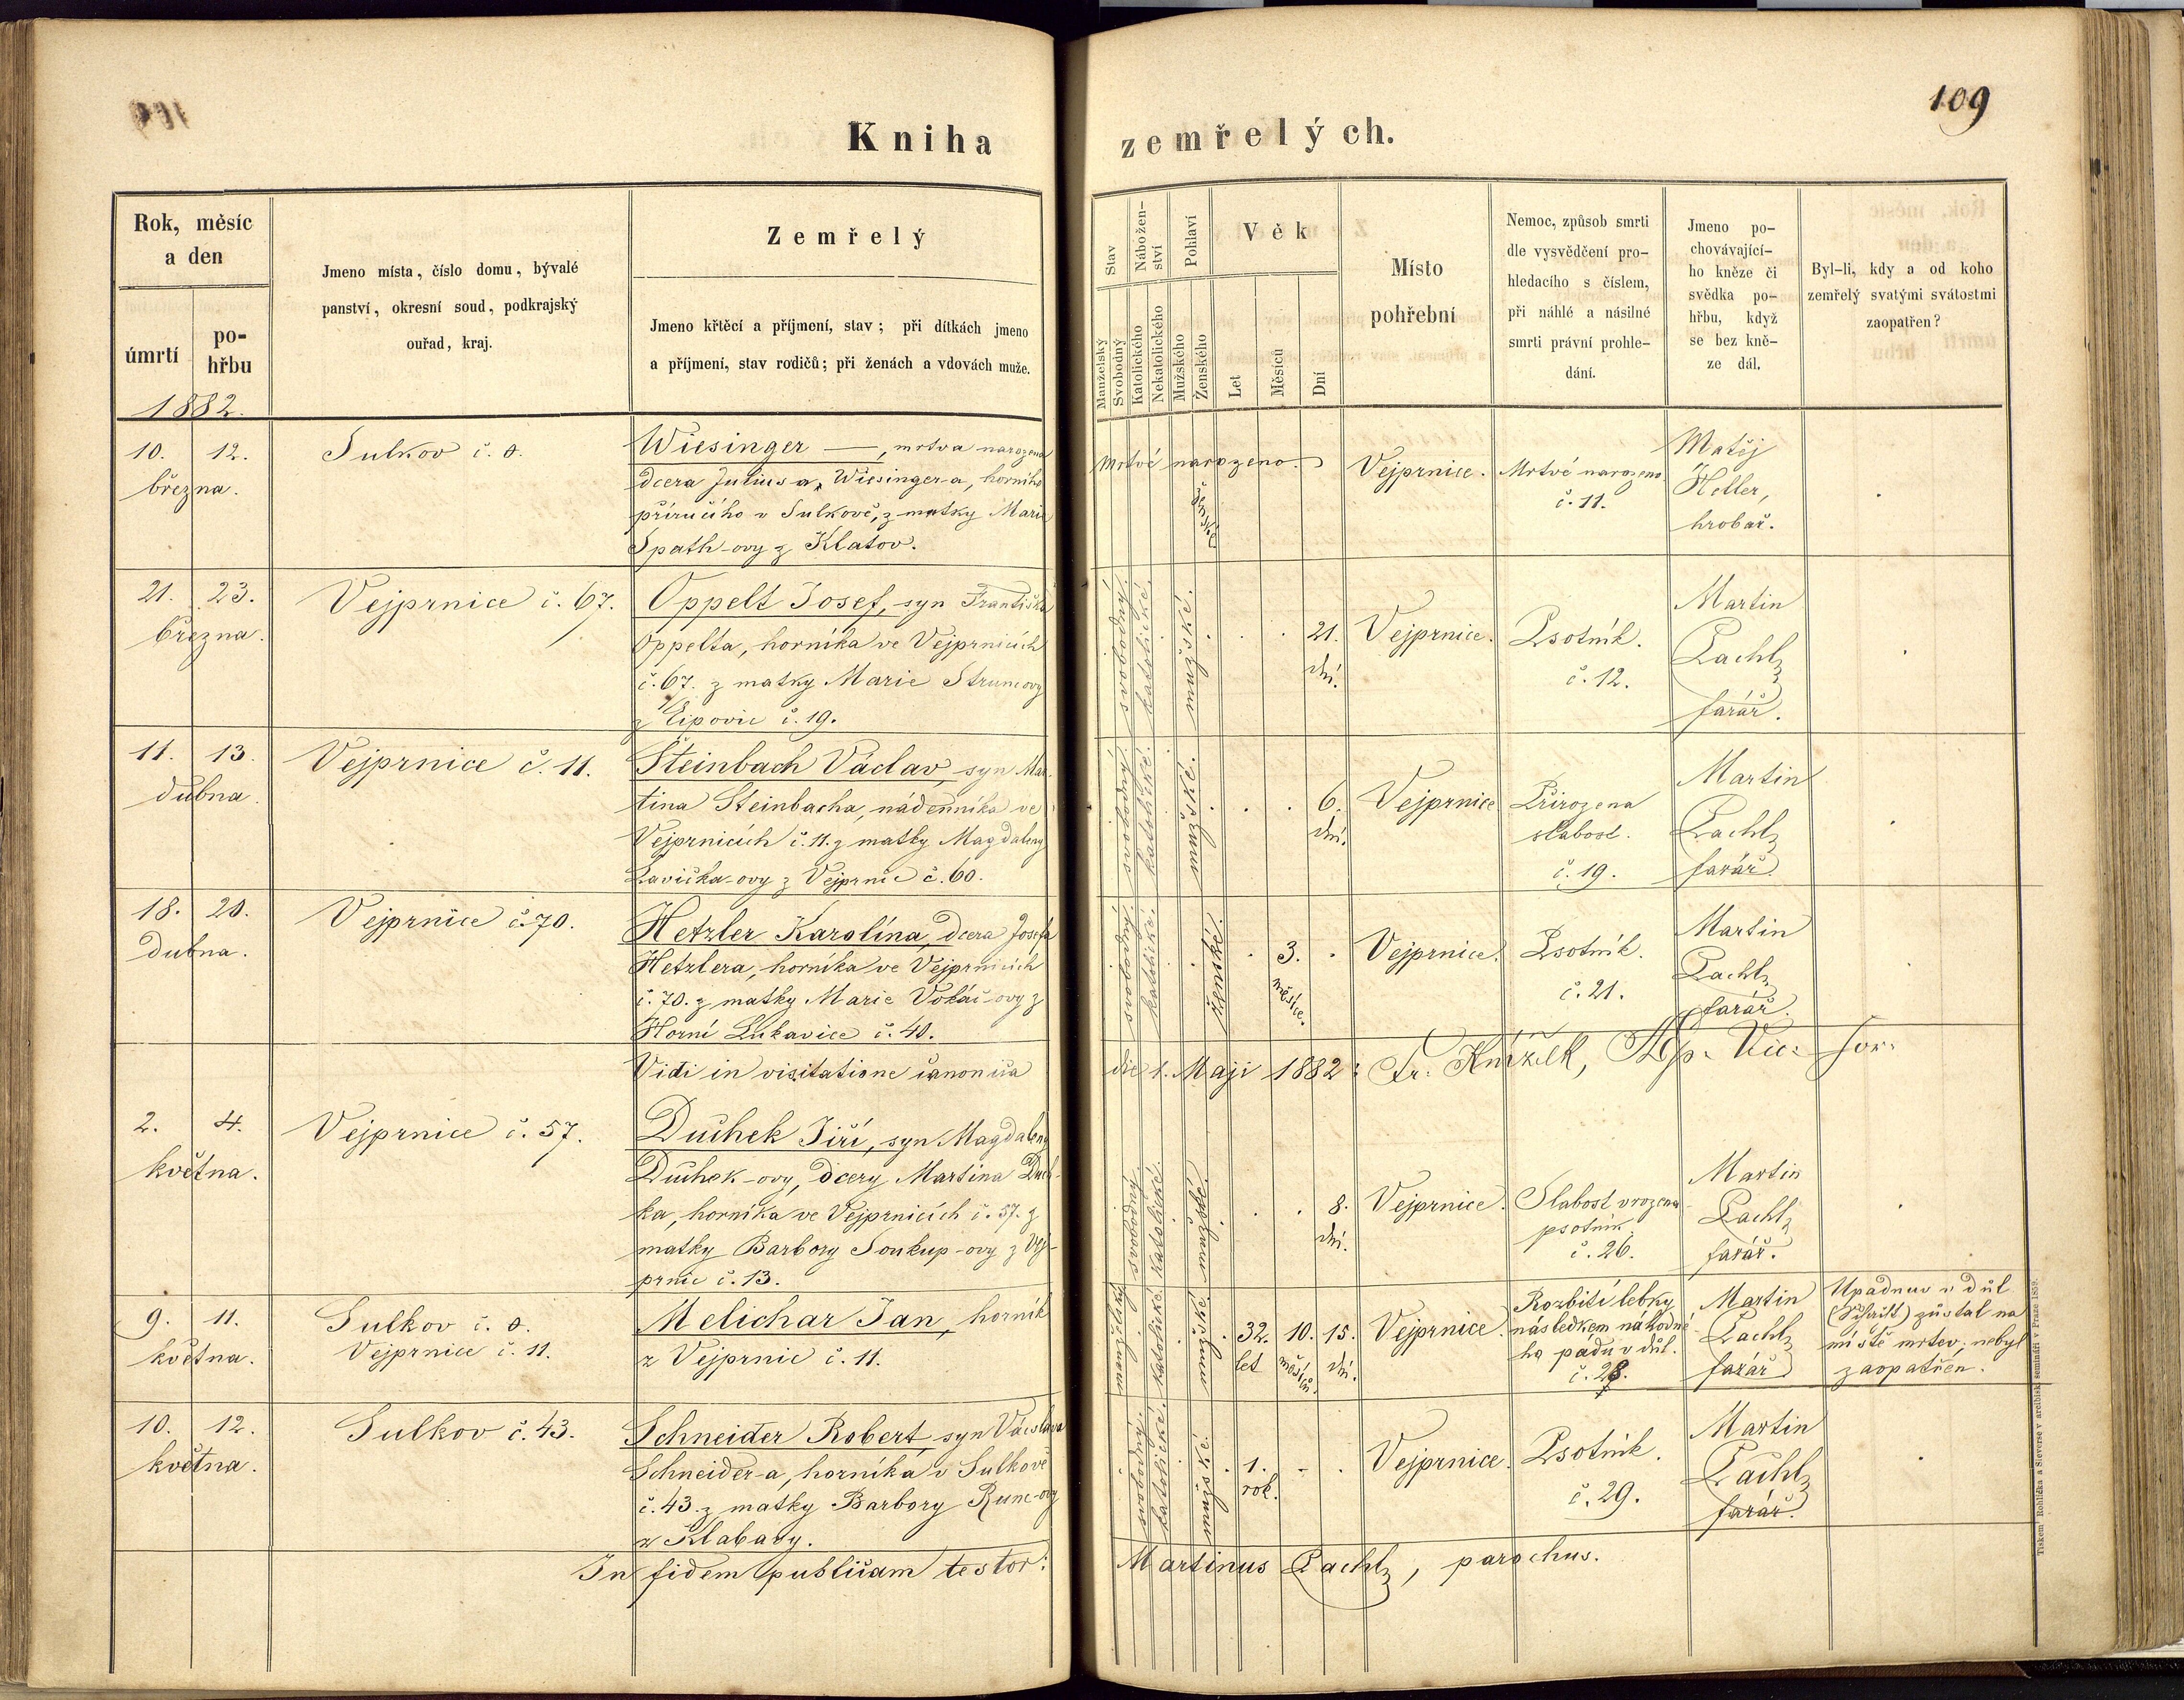 109
Kniha zemřelých.
Rok, měsíc
a den
úmrtí
po-
hřbu
1882.
Jmeno místa, číslo domu, bývalé
panství, okresní soud, podkrajský
ouřad, kraj.
Zemřelý
Jmeno křtěcí a příjmení, stav; při dítkách jmeno
a příjmení, stav rodičů; při ženách a vdovách muže.
Stav
Manželský
Svobodný
Nábožen-
ství
Katolického
Nekatolického
Pohlaví
Mužského
Ženského
Věk
Let
Měsíců
Dní
Místo
pohřební
Nemoc, způsob smrti
dle vysvědčení pro-
hledacího s číslem,
při náhlé a násilné
smrti právní prohle-
dání.
Jmeno po-
chovávající-
ho kněze či
svědka po-
hřbu, když
se bez kně-
ze dál.
Byl-li, kdy a od koho
zemřelý svatými svátostmi
zaopatřen?
10. 12.
března.
Sulkov č. 0.
Wiesinger —, mrtva narozena
dcera Juliusa Wiesinger-a, horního
příručího v Sulkově, z matky Marie
Spath-ovy z Klatov.
Mrtvé narozeno.
ženské
Vejprnice.
Mrtvé narozeno
č. 11.
Matěj
Heller,
hrobař.
21. 23.
března.
Vejprnice č. 67.
Oppelt Josef, syn Františka
Oppelta, horníka ve Vejprnicích
č. 67. z matky Marie Strunc ovy
z Ejpovic č. 19.
svobodný.
katolické.
mužské.
21.
dní.
Vejprnice.
Psotník.
č. 12.
Martin
Pachl,
farář.
11. 13.
dubna.
Vejprnice č. 11.
Steinbach Václav, syn Mar-
tina Steinbacha, nádenníka ve
Vejprnicích č. 11. z matky Magdaleny
Lavička-ovy z Vejprnic č. 60.
svobodný.
katolické.
mužské.
6.
dní.
Vejprnice
Přirozena
slabost.
č. 19.
Martin
Pachl,
farář.
18. 20.
dubna.
Vejprnice č. 70.
Hetzler Karolína, dcera Josefa
Hetzlera, horníka ve Vejprnicích
č. 70. z matky Marie Vokáč-ovy z
Horní Lukavice č. 40.
svobodný.
katolické.
ženské.
3.
měsíce.
Vejprnice.
Psotník.
č. 21.
Martin
Pachl,
farář.
Vidi in visitatione canonica die 1. Maji 1882: Fr.
2. 4.
května.
Vejprnice č. 57.
Duchek Jiří, syn Magdaleny
Duchek-ovy, dcery Martina Duch-
ka, horníka ve Vejprnicích č. 57. z
matky Barbory Soukup-ovy z Vej-
prnic č. 13.
svobodný.
katolické.
mužské.
8.
dní.
Vejprnice.
Slabost vrozena
psotník.
č. 26.
Martin
Pachl,
farář.
9. 11.
května.
Sulkov č. 0.
Vejprnice č. 11.
Melichar Jan, horník
z Vejprnic č. 11.
manželský
katolické.
mužské.
32.
let
10.
měsíců.
15.
dní.
Vejprnice.
Rozbití lebky
následkem náhodné-
ho pádu v důl.
č. 28.
Martin
Pachl,
farář
Upadnuv v důl
(Schacht) zůstal na
místě mrtev; nebyl
zaopatřen.
10. 12.
května.
Sulkov č. 43.
Schneider Robert, syn Václava
Schneider-a, horníka v Sulkově
č. 43. z matky Barbory Runc-ovy
z Klabavy.
svobodný.
katolické.
mužské.
1.
rok.
Vejprnice.
Psotník.
č. 29.
Martin
Pachl,
farář.
In fidem publicam testor: Martinus Pachl, parochus.
Tiskem Rohlíčka a Sieverse v arcibisk. semináři v Praze 1859.